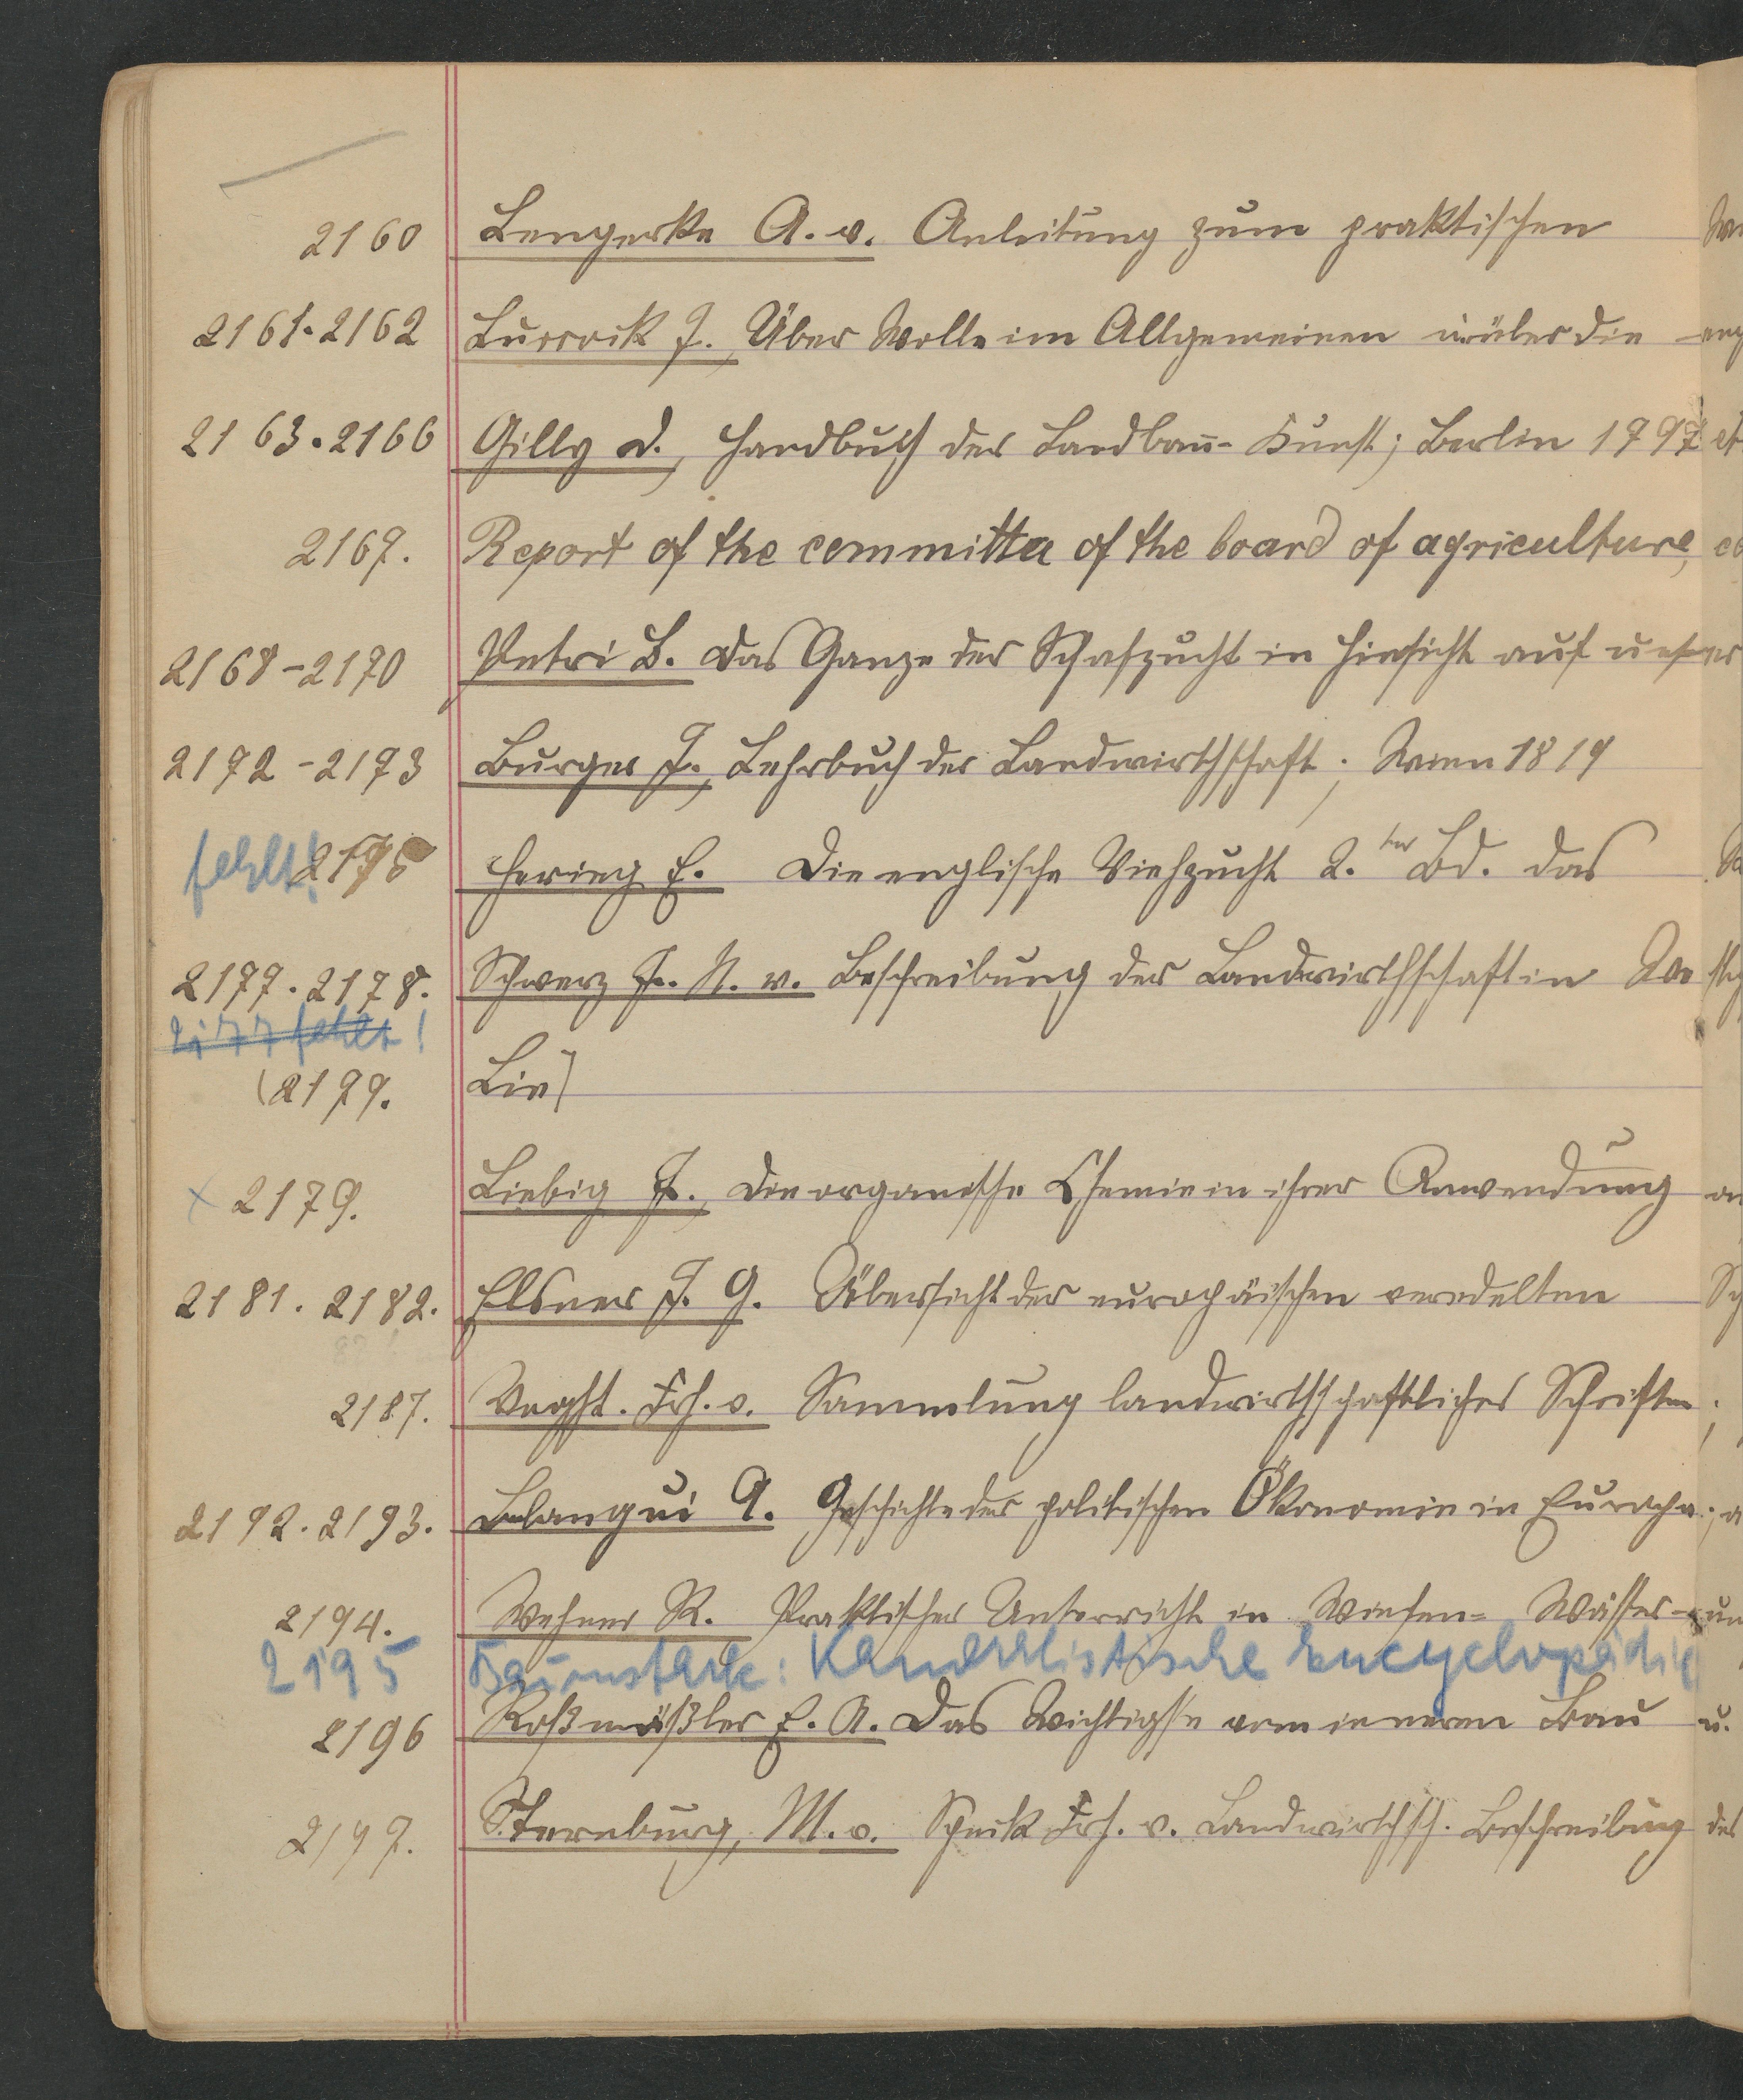 2160 Lengerke A. v. Anleitung zum praktischen
2161-2162 Luccock J., Über Wolle im Allgemeinen u. über die
2163.2166 Gilly D., Handbuch der Landbau-Kunst; Berlin 1797
2167. Report of the committa of the board of agriculture,
2168-2170 Petri B. Das Ganze der Schafzucht in Hinsicht auf unser
2172-2173 Burger J., Lehrbuch der Landwirthschaft; Wien 1819
fehlt! 2175 Hering E. Die englische Viehzucht 2.ter Bd. das
2177.2178. Schwerz J. N. v. Beschreibung der Landwirthschaft in We
2177 fehlt!
(2179. Lie)
x 2179. Liebig J., Die organische Chemie in ihrer Anwendung
2181.2182. Elsner J. G. Übersicht der europäischen veredelten
2187. Voght. Frh. v. Sammlung landwirthschaftlicher Schriften;
2192.2193. Blanqui A. Geschichte der politischen Ökonomie in Europa;
2194. Wehner R. Praktischer Unterricht in Wiesen- Wässer-
2195 Baumstark: Kameralistische Encyclopädie
2196 Roßmäßler E. A. Das Wichtigste vom inneren Bau u.
2197. Sternburg, M. v. Speck Frh. v. Landwirthsch. Beschreibung des